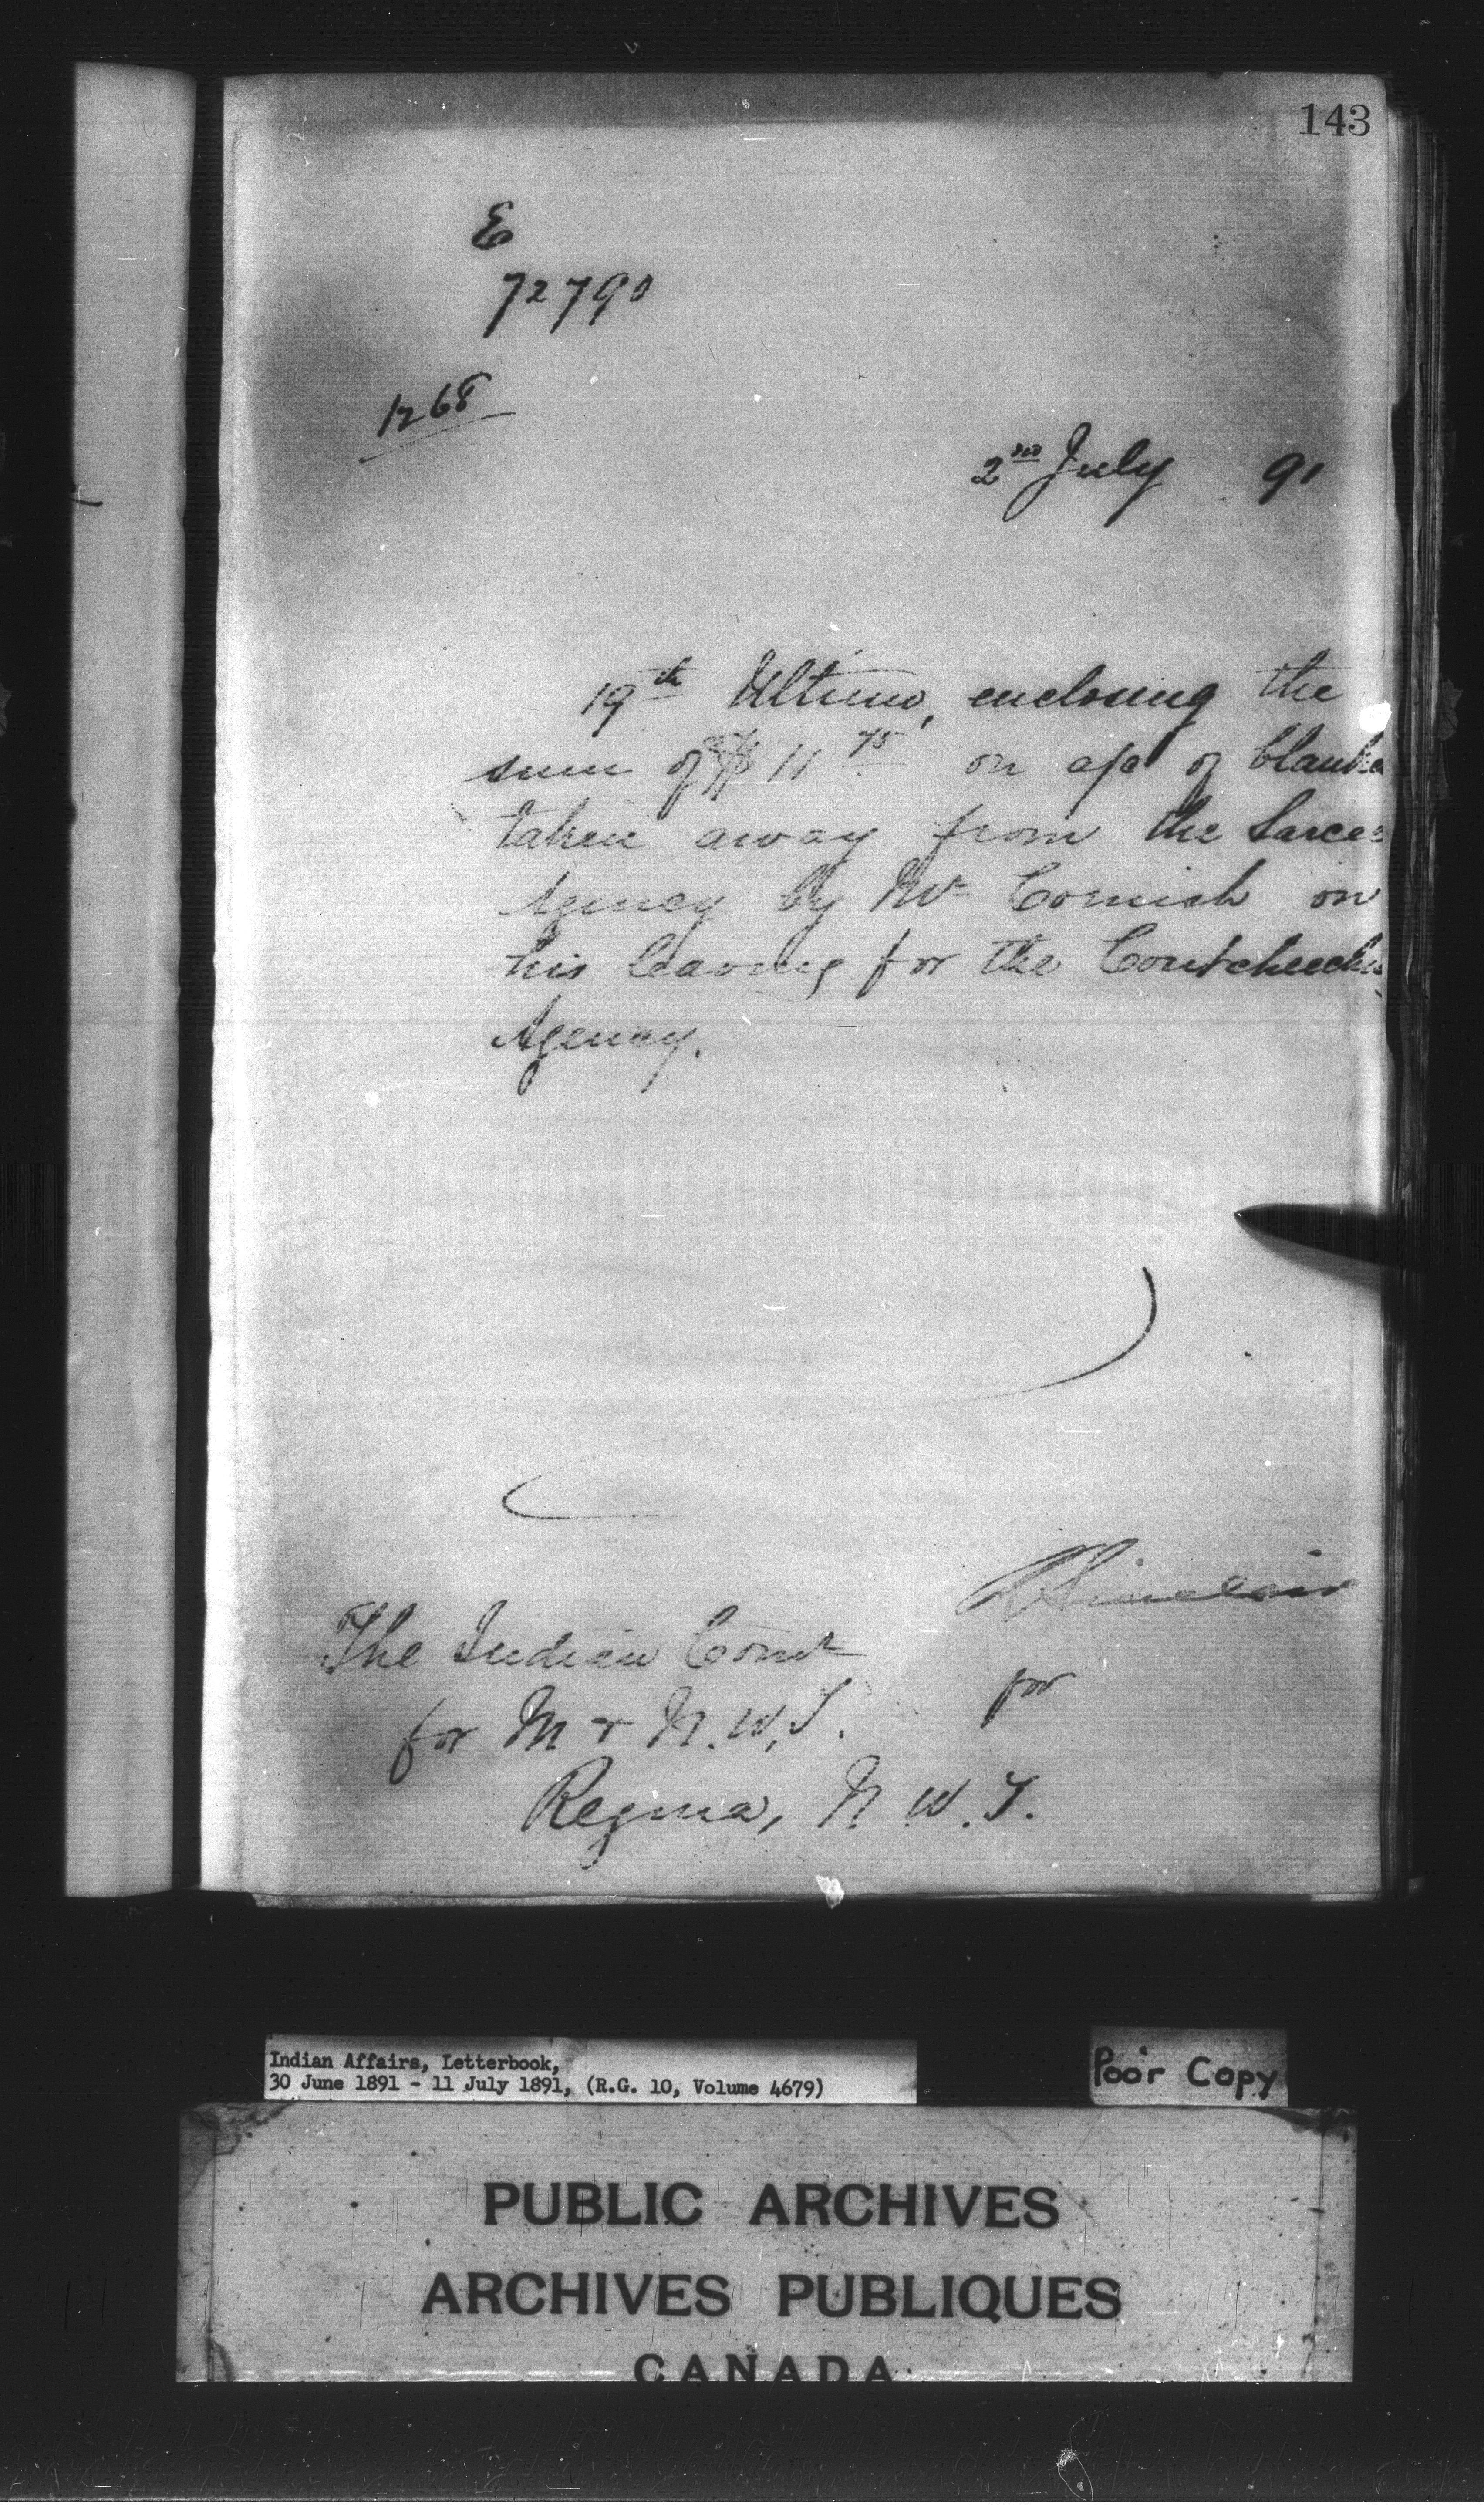 143
E
72790
1268
2nd July 91
19th Ultimo, enclosing the
sum of $11 75 on a/c of blanke
taken away from the Sarcee
Agency by Mr Cornish on
his leaving for the Coutcheech
Agency.
Sinclair
The Indian Comr
for
for M & N.W.T.
Regina, N W.T.
Indian Affairs, Letterbook,
30 June 1891 - 11 July 1891, (R.G. 10, Volume 4679)
Poor Copy
PUBLIC ARCHIVES
ARCHIVES PUBLIQUES
CANADA